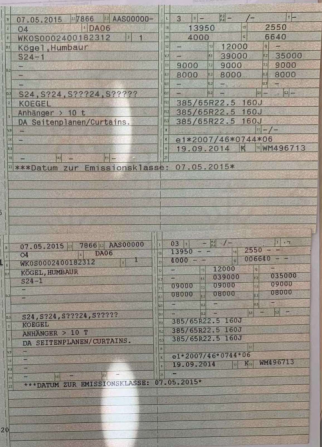 07.05.2015 7866 AAS00000-
3 - - /- -
04 DA06
13950 2550
WKOS0002400182312 1
4000 6640
Kögel,Humbaur
- 12000 -
S24-1
- 39000 35000
-
9000 9000 9000
-
8000 8000 8000
-
S24,S?24,S???24,S?????
385/65R22.5 160J
KOEGEL
385/65R22.5 160J
Anhänger > 10 t
385/65R22.5 160J
DA Seitenplanen/Curtains.
-/-
-
e1*2007/46*0744*06
-
19.09.2014 K WM496713
-
***Datum zur Emissionsklasse: 07.05.2015*
07.05.2015 7866 AAS00000
03 - - /- -
04 DA06
13950 - - 2550 - -
WKOS0002400182312 1
4000 - - 006640 - -
KÖGEL,HUMBAUR
- 12000 -
S24-1
- 039000 035000
-
09000 09000 09000
-
08000 08000 08000
-
S24,S?24,S???24,S?????
385/65R22.5 160J
KOEGEL
385/65R22.5 160J
ANHÄNGER > 10 T
385/65R22.5 160J
DA SEITENPLANEN/CURTAINS.
-
e1*2007/46*0744*06
-
19.09.2014 K WM496713
-
***DATUM ZUR EMISSIONSKLASSE: 07.05.2015*
20